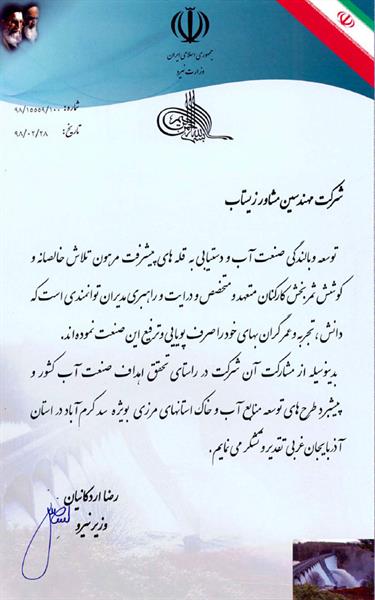 جمهوری اسلامی ایران
وزارت نیرو
شماره: ۹۸/۱۵۵۵۹/۱۰۰
تاریخ: ۹۸/۰۲/۲۸
شرکت مهندسین مشاور زیستاب
توسعه و بالندگی صنعت آب و دستیابی به قله های پیشرفت مرهون تلاش خالصانه و
کوشش ثمربخش کارکنان متعهد و متخصص و درایت و راهبری مدیران توانمندی است که
دانش، تجربه و عمر گران بهای خود را صرف پویایی و ترفیع این صنعت نموده‌اند.
بدینوسیله از مشارکت آن شرکت در راستای تحقق اهداف صنعت آب کشور و
پیشبرد طرح های توسعه منابع آب و خاک استانهای مرزی بویژه سد کرم آباد در استان
آذربایجان غربی تقدیر و تشکر می نمایم.
رضا اردکانیان
وزیر نیرو